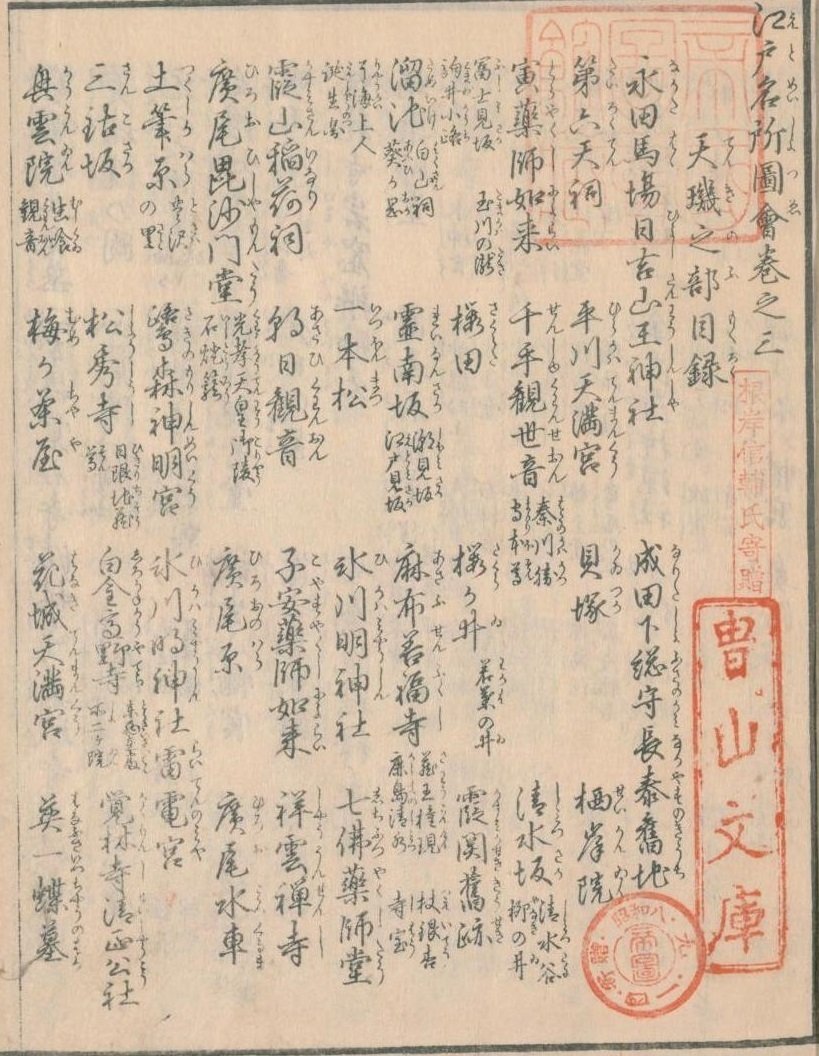 江戸名所圖會巻之三
天璣之部目録
永田馬場日吉山王神社
成田下総守長泰舊地
第六天祠
平川天満宮
貝塚
栖岸院
寅薬師如来
千手観世音
秦川勝
清水坂
清水谷
柳の井
冨士見坂
玉川の瀧
駒井小路
桜田
桜の井
若葉の井
霞関舊跡
溜池
白山祠
葵の岡
霊南坂
潮見坂
江戸見坂
麻布善福寺
蔵王権現
杖銀杏
鹿島清水
寺宝
了海上人
誕生地
一本松
氷川明神社
七佛薬師堂
霞山稲荷祠
朝日観音
子安薬師如来
祥雲禅寺
廣尾毘沙門堂
光孝天皇御陵
石燈籠
廣尾原
廣尾水車
土筆原
の里
鷺森神明宮
氷川明神社
雷電宮
三鈷坂
松秀寺
日限地蔵
白金高野寺
不二ヶ院
覚林寺清正公社
興雲院
生噉
観音
梅が茶屋
花城天満宮
英一蝶墓
根岸信輔氏寄贈
曺山文庫
昭和八
帝圖